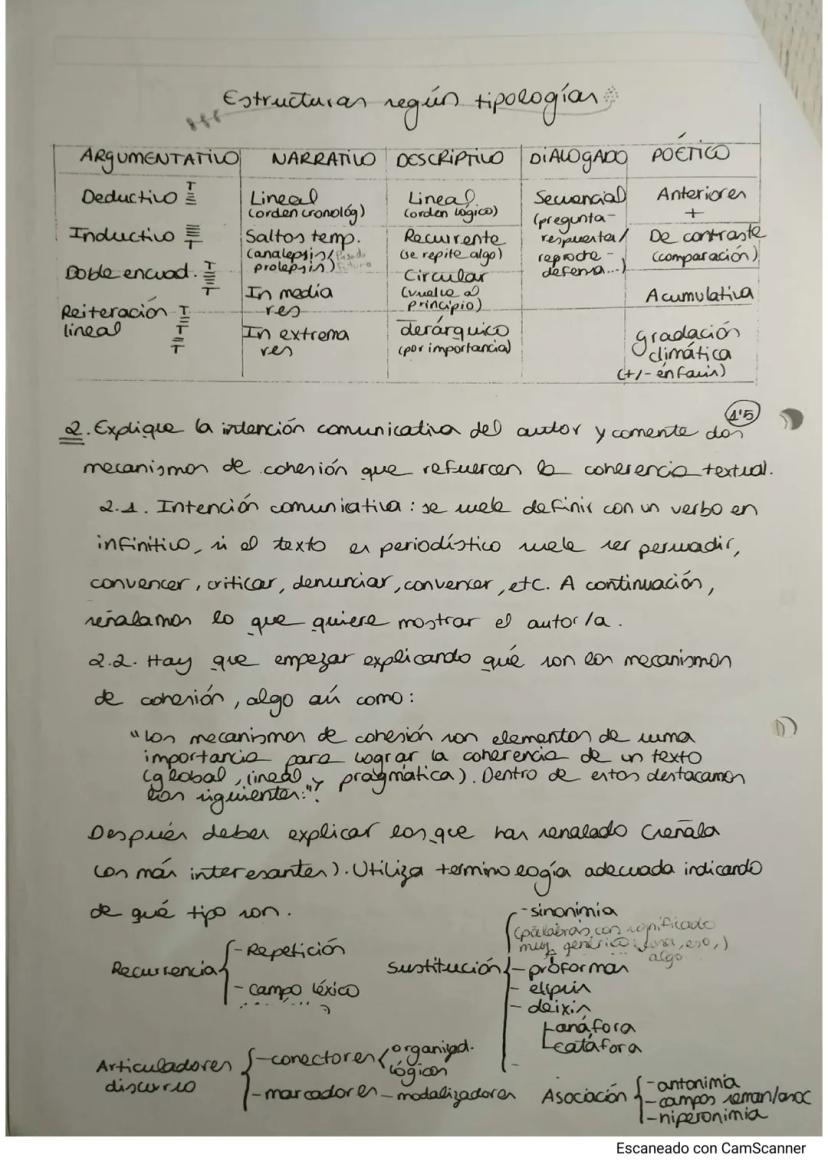 Estructuras según tipologías
ARGUMENTATIVO NARRATIVO DESCRIPTIVO DIALOGADO POÉTICO
Deductivo T
Inductivo T
Doble encuad. T T
Reiteración lineal T T T
Lineal
(orden cronológ)
Saltos temp.
(analepsis/ Pasado
prolepsis) Futuro
In media
res
In extrema
res
Lineal
(orden lógico)
Recurrente
(se repite algo)
Circular
(vuelve al
principio)
Jerárquico
(por importancia)
Secuencial
(pregunta-
respuesta/
reproche-
defensa...)
Anteriores
+
De contraste
(comparación)
Acumulativa
gradación
climática
(+/- énfasis)
1'5
2. Explique la intención comunicativa del autor y comente dos
mecanismos de cohesión que refuercen la coherencia textual.
2.1. Intención comunicativa: se suele definir con un verbo en
infinitivo, si el texto es periodístico suele ser persuadir,
convencer, criticar, denunciar, convencer, etc. A continuación,
señalamos lo que quiere mostrar el autor/a.
2.2. Hay que empezar explicando qué son los mecanismos
de cohesión, algo así como:
"Los mecanismos de cohesión son elementos de suma
importancia para lograr la coherencia de un texto
(global, lineal y pragmática). Dentro de estos destacamos
los siguientes:".
Después debes explicar los que has señalado (señala
los más interesantes). Utiliza terminología adecuada indicando
de qué tipo son.
Recurrencia
- Repetición
- campo léxico
Sustitución
- sinonimia
(palabras con significado
muy genérico: cosa, eso,)
algo
- proformas
- elipsis
- deixis
anáfora
catáfora
-
Articuladores
discurso
- conectores organizad.
lógicos
- marcadores - modalizadores
Asociación
- antonimia
- campos seman/asoc
- hiperonimia
Escaneado con CamScanner